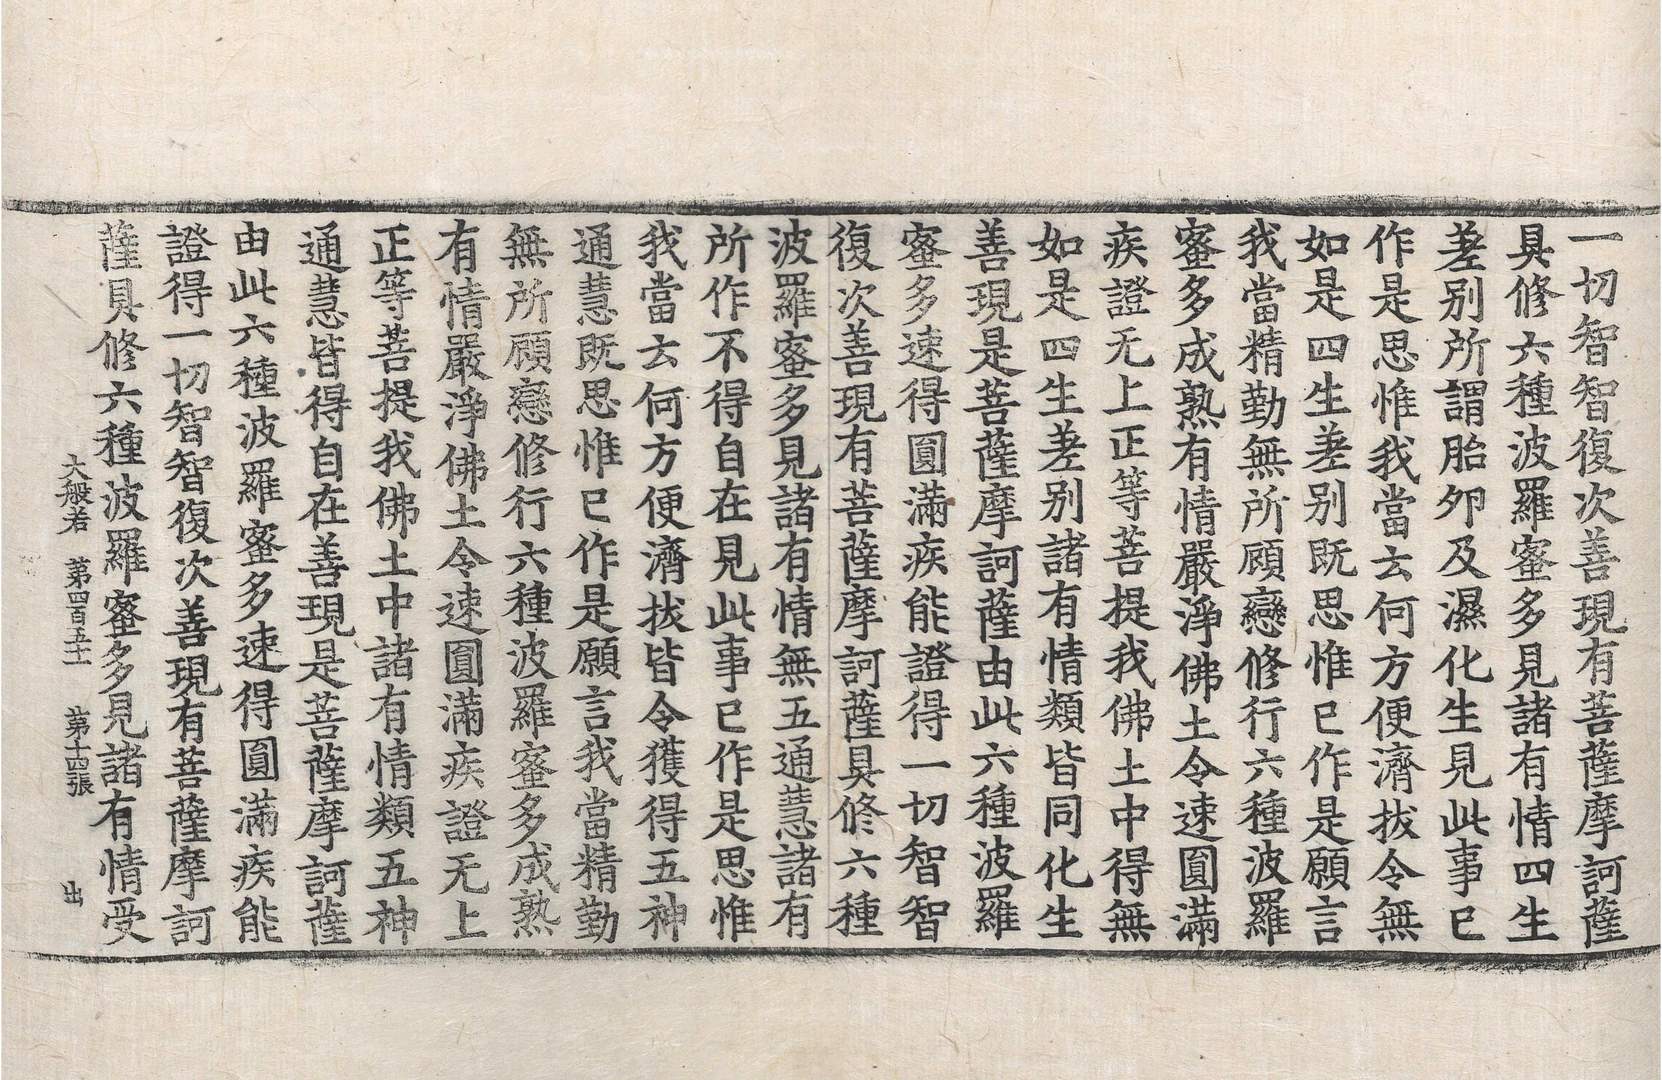 一切智智復次善現有菩薩摩訶薩
具修六種波羅蜜多見諸有情四生
差别所謂胎夘及濕化生見此事已
作是思惟我當云何方便濟拔令無
如是四生差别既思惟已作是願言
我當精勤無所顧戀修行六種波羅
蜜多成熟有情嚴淨佛土令速圓滿
疾證无上正等菩提我佛土中得無
如是四生差别諸有情類皆同化生
善現是菩薩摩訶薩由此六種波羅
蜜多速得圓滿疾能證得一切智智
復次善現有菩薩摩訶薩具修六種
波羅蜜多見諸有情無五通慧諸有
所作不得自在見此事已作是思惟
我當云何方便濟拔皆令獲得五神
通慧既思惟已作是願言我當精勤
無所顧戀修行六種波羅蜜多成熟
有情嚴淨佛土令速圓滿疾證无上
正等菩提我佛土中諸有情類五神
通慧皆得自在善現是菩薩摩訶薩
由此六種波羅蜜多速得圓滿疾能
證得一切智智復次善現有菩薩摩訶
薩具修六種波羅蜜多見諸有情受
大般若 第四百五十一 第十四張 出